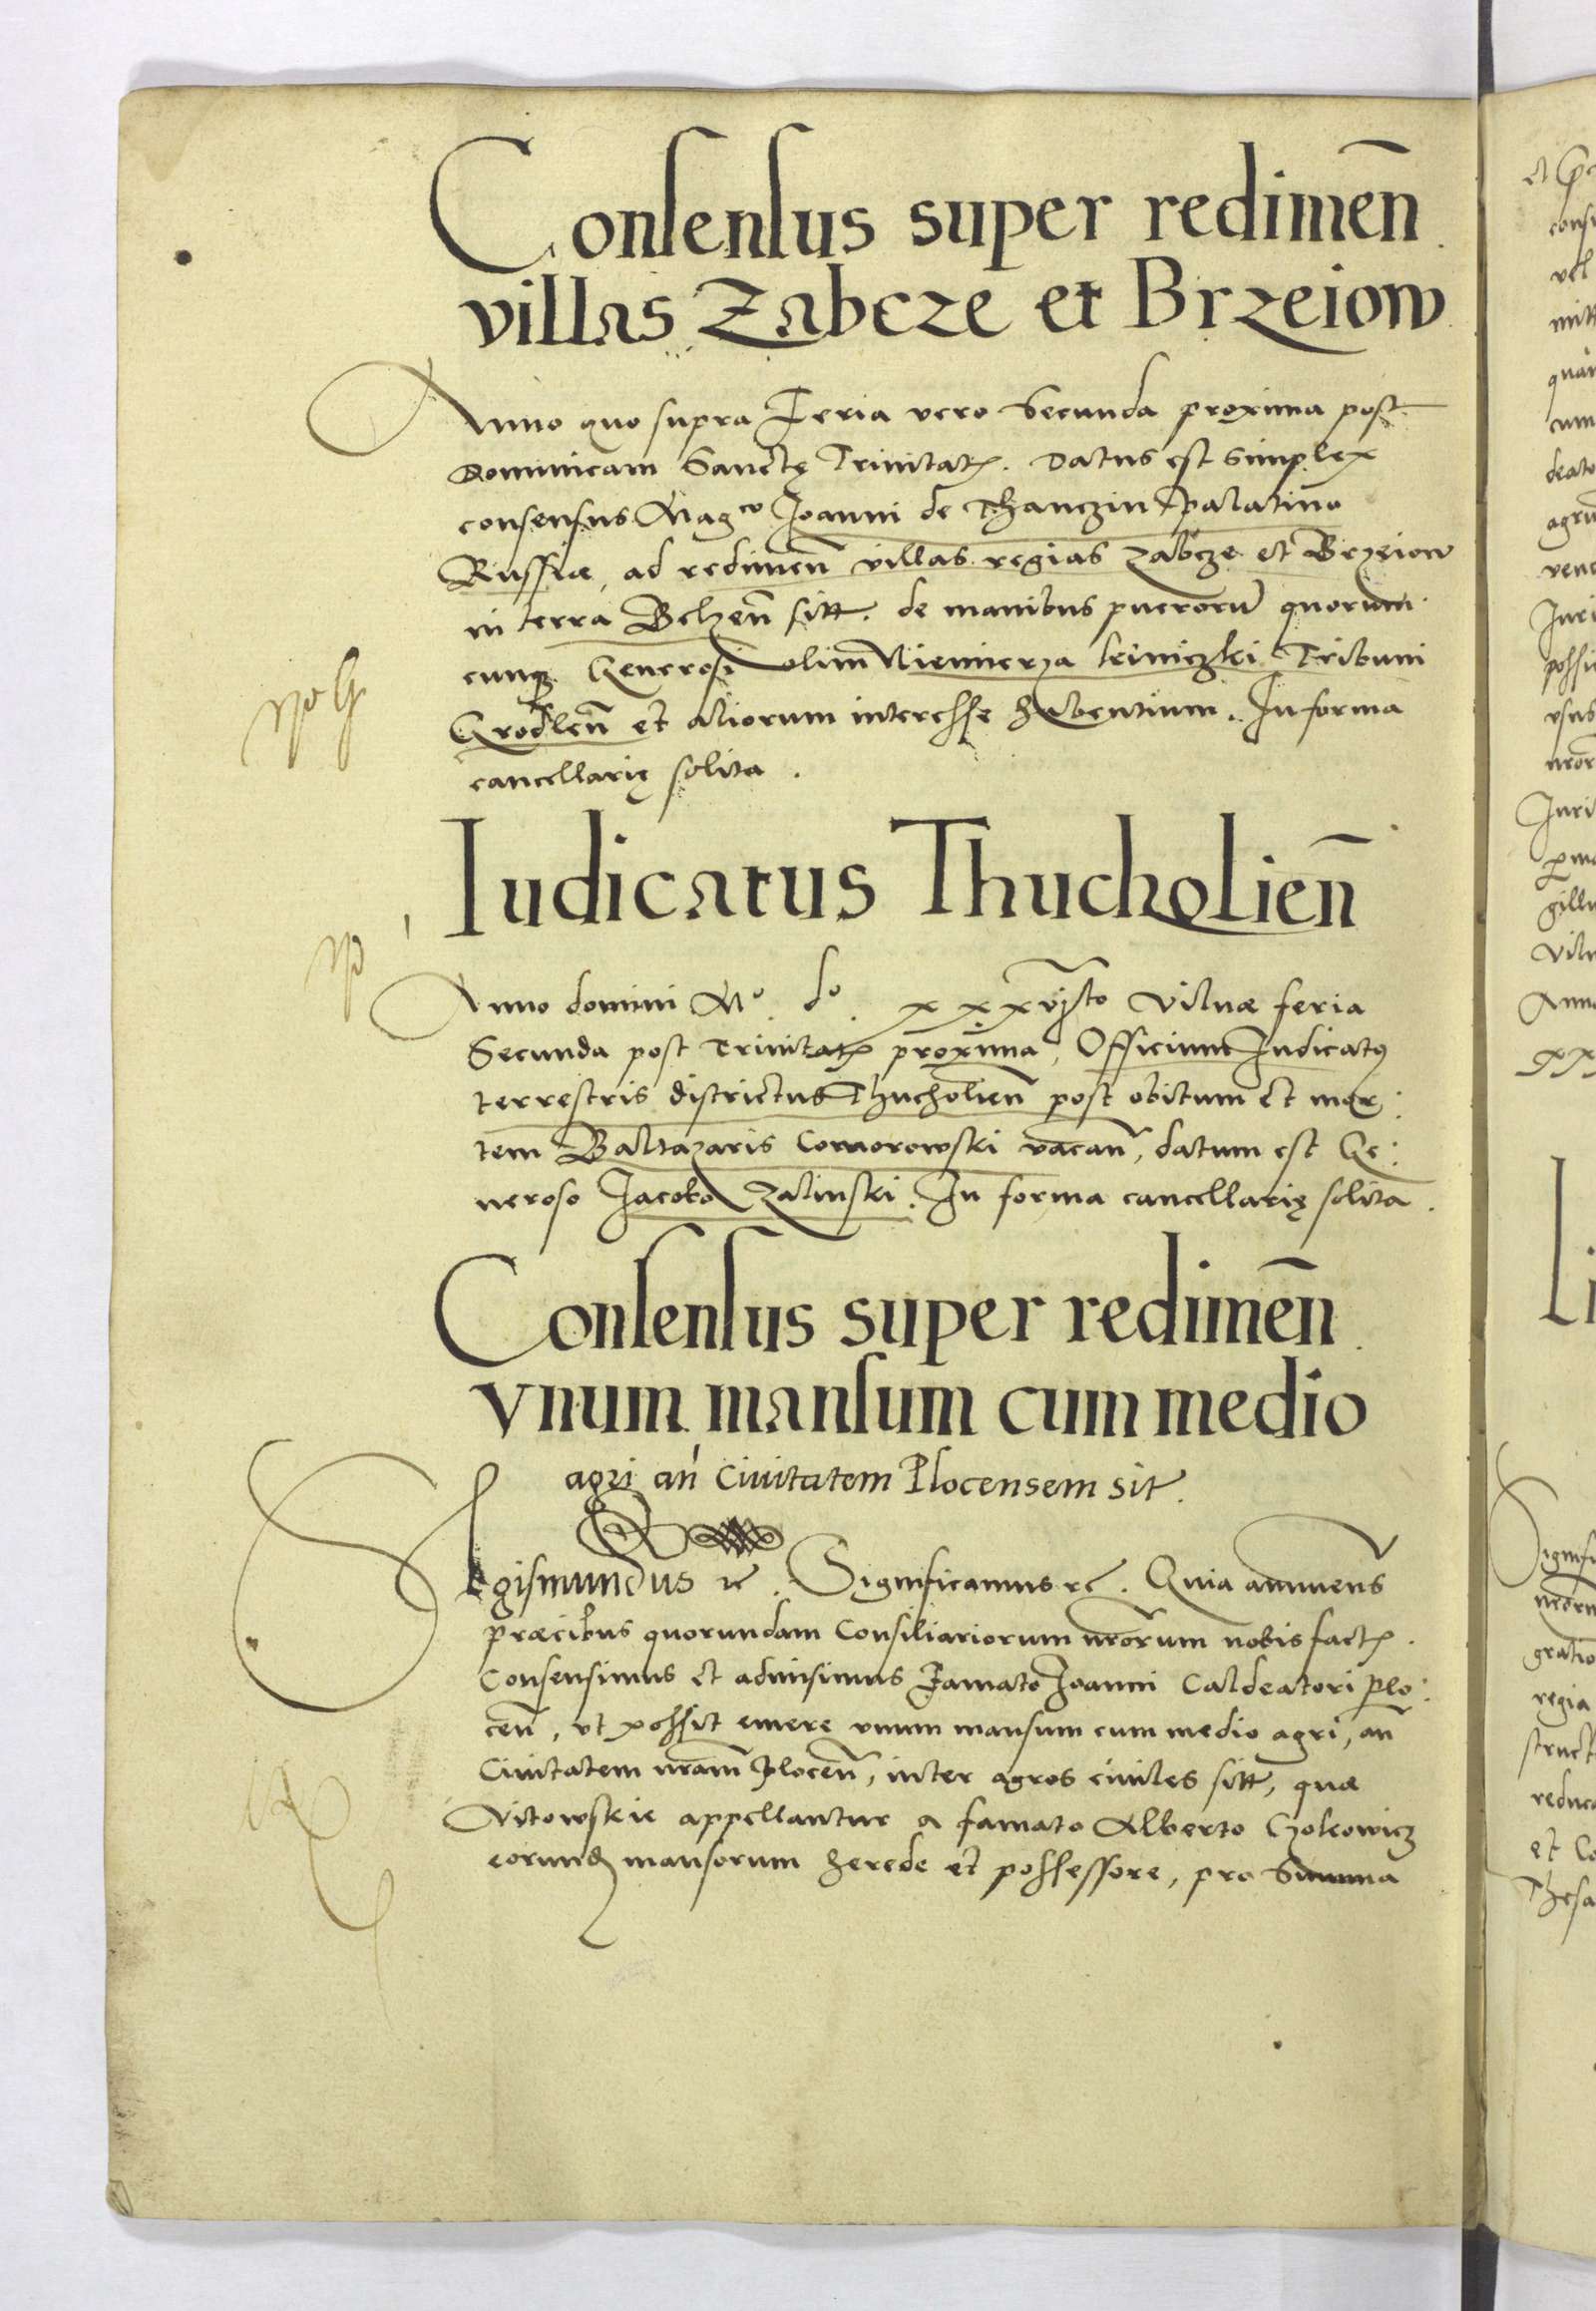 Consensus super redimen̄
villas Zabcze et Brzeiow
Anno quo supra Feria vero Secunda proxima post
Dominicam Sanctę Trinitatꝭ. Datus est simplex
consensus Mag^co Joanni de Thanczin palatino
Russiæ, ad redimen̄ villas regias Zabcze et Brzeiow
in terra Belzen̄ sitt. de manibus puerorū quorum
cunqꝫ Generosi olim Niemierza kriniczki Tribuni
Grodlen̄ et aliorum interesse habentium. In forma
cancellarię solita.
Iudicatus Thucholien̄
Anno domini M° d° xxxvjto Vilnæ feria
Secunda post Trinitatꝭ proxima, Officium Judicatꝰ
terrestris districtus Thucholien̄ post obitum et mor:
tem Baltazaris Comorowski vacan̄, datum est Ge:
neroso Jacobo Zalinski. In forma cancellarię solita.
Consensus super redimen̄
vnum mansum cum medio
agri an̄ Ciuitatem Plocensem sit.
Sigismundus ꝛc. Significamus ꝛc. Quia annuens
præcibus quorundam Consiliariorum nr̄orum nobis factꝭ.
Consensimus et admisimus Famato Joanni Caldeatori plo:
cen̄, vt possit emere vnum mansum cum medio agri, an̄
Ciuitatem nr̄am plocen̄, inter agros ciuiles sitt, quæ
Vitowskie appellantur a famato Alberto Czolkowicz
eorundꝫ mansorum herede et possessore, pro Summa